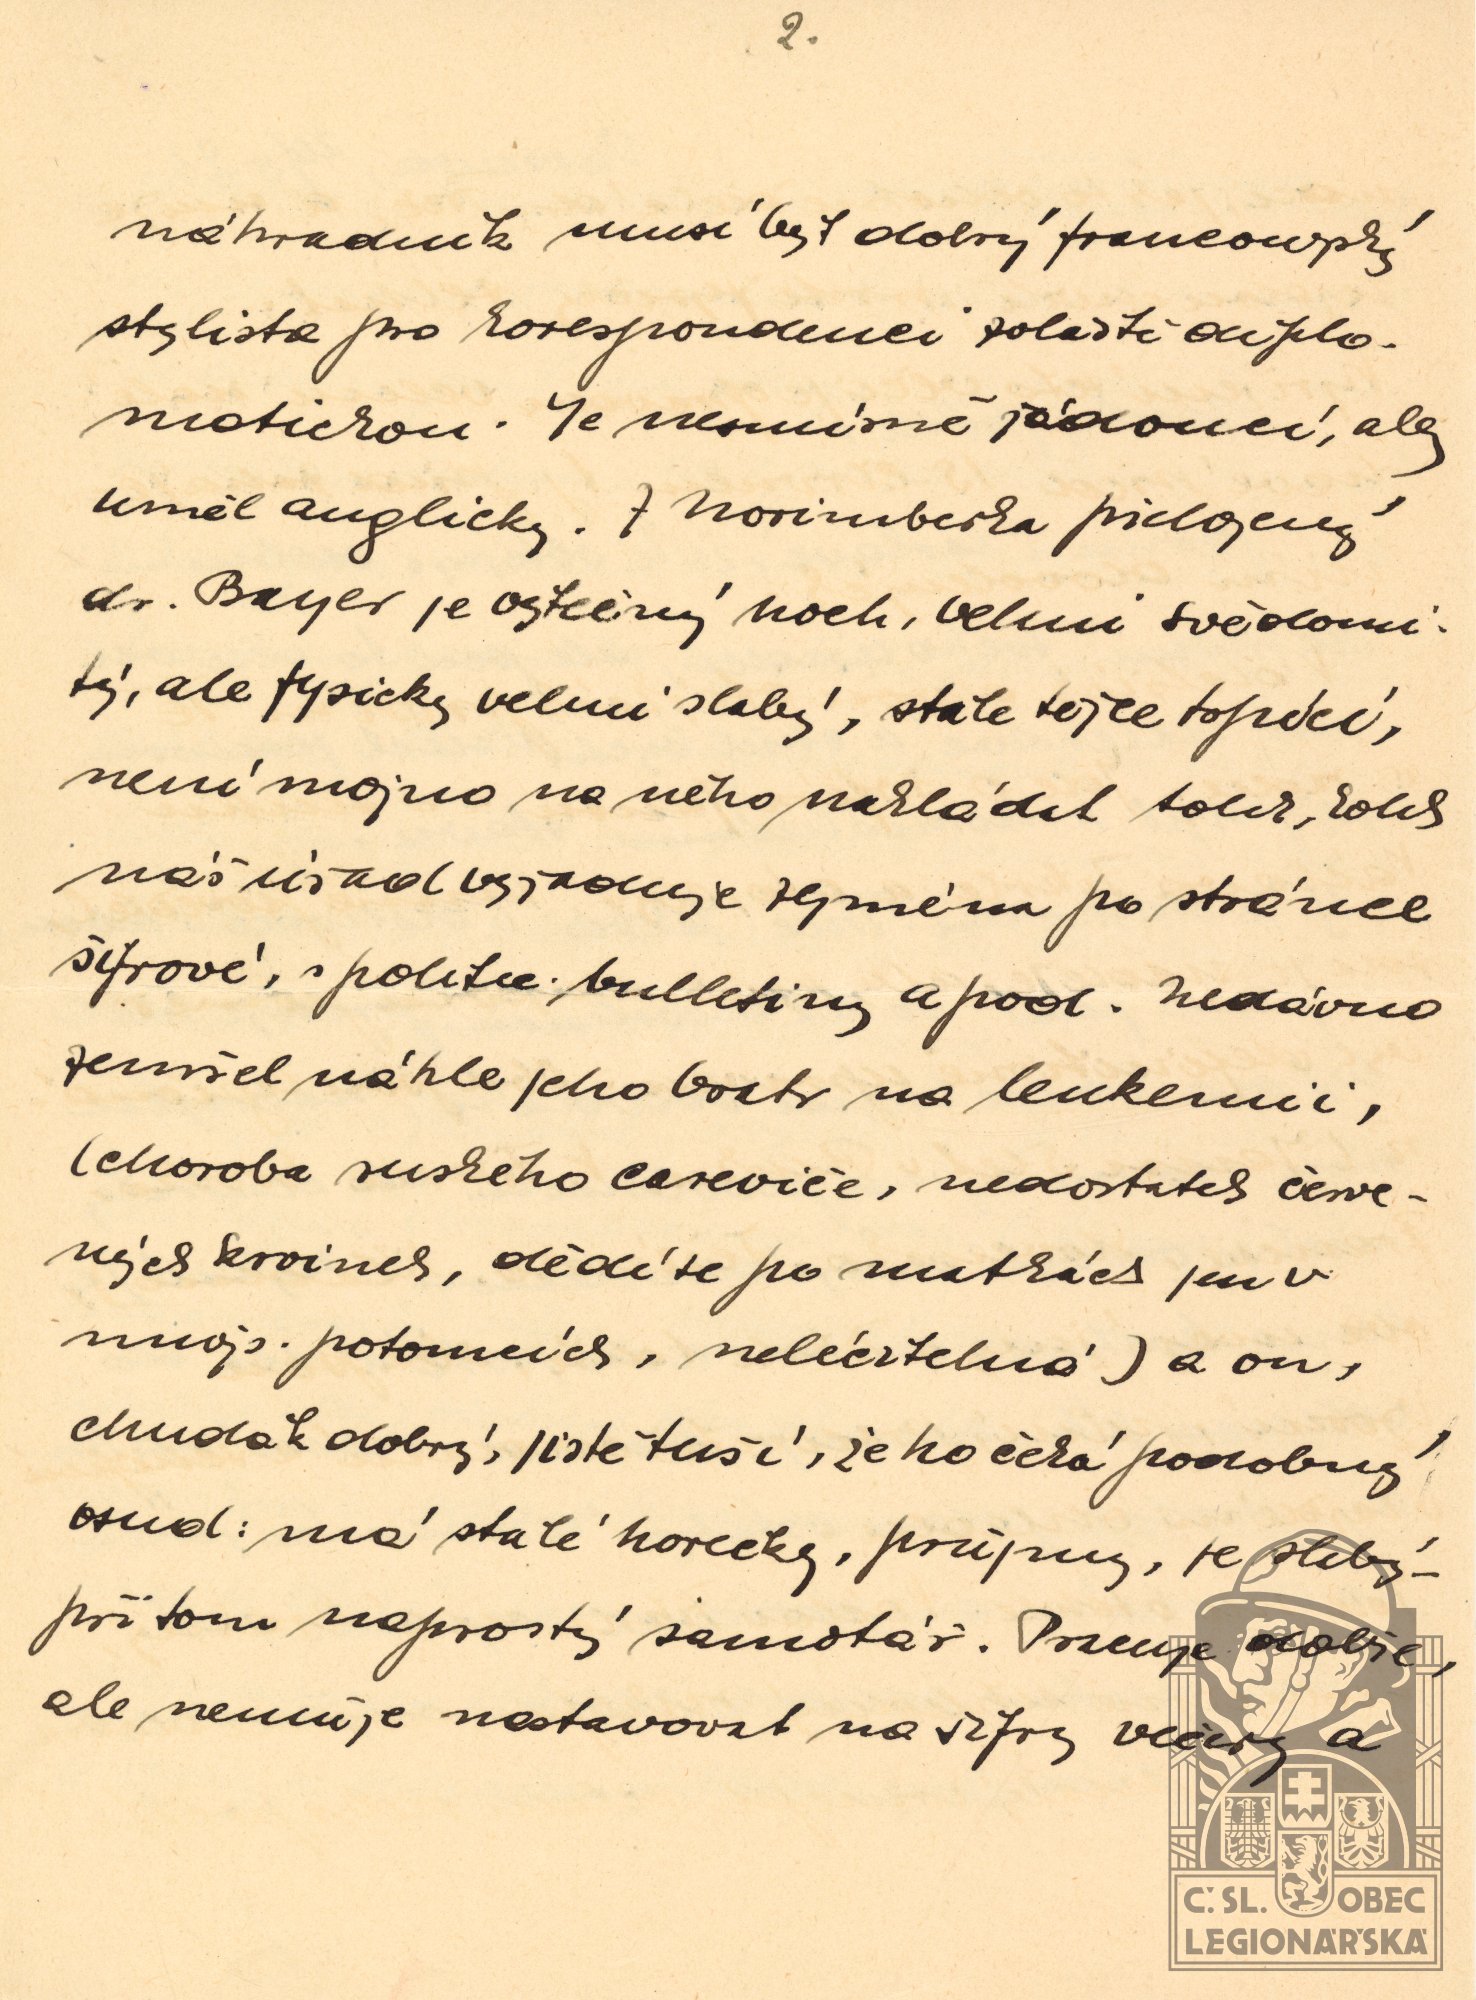 2.
náhradník musí být dobrý francouzský
stylista pro korespondenci zvláště diplo-
matickou. Je nesmírně žádoucí, aby
uměl anglicky. Z Norimberka přidělený
dr. Bayer je výtečný hoch, velmi svědomi-
tý, ale fysicky velmi slabý, stále těžce trpící,
není možno na něho nakládat tolik, kolik
náš úřad vyžaduje zejména po stránce
šifrové, s politic. bulletiny a pod. Nedávno
zemřel náhle jeho bratr na leukemii,
(choroba ruského careviče, nedostatek červe-
ných krvinek, dědí se po matkách jen v
mužs. potomcích, neléčitelná) a on,
chudák dobrý, jistě tuší, že ho čeká podobný
osud: má stálé horečky, průjmy, je slabý -
při tom naprostý samotář. Pracuje dobře,
ale nemůže nastavovat na šifry večery a
Č.SL. OBEC
LEGIONÁŘSKÁ